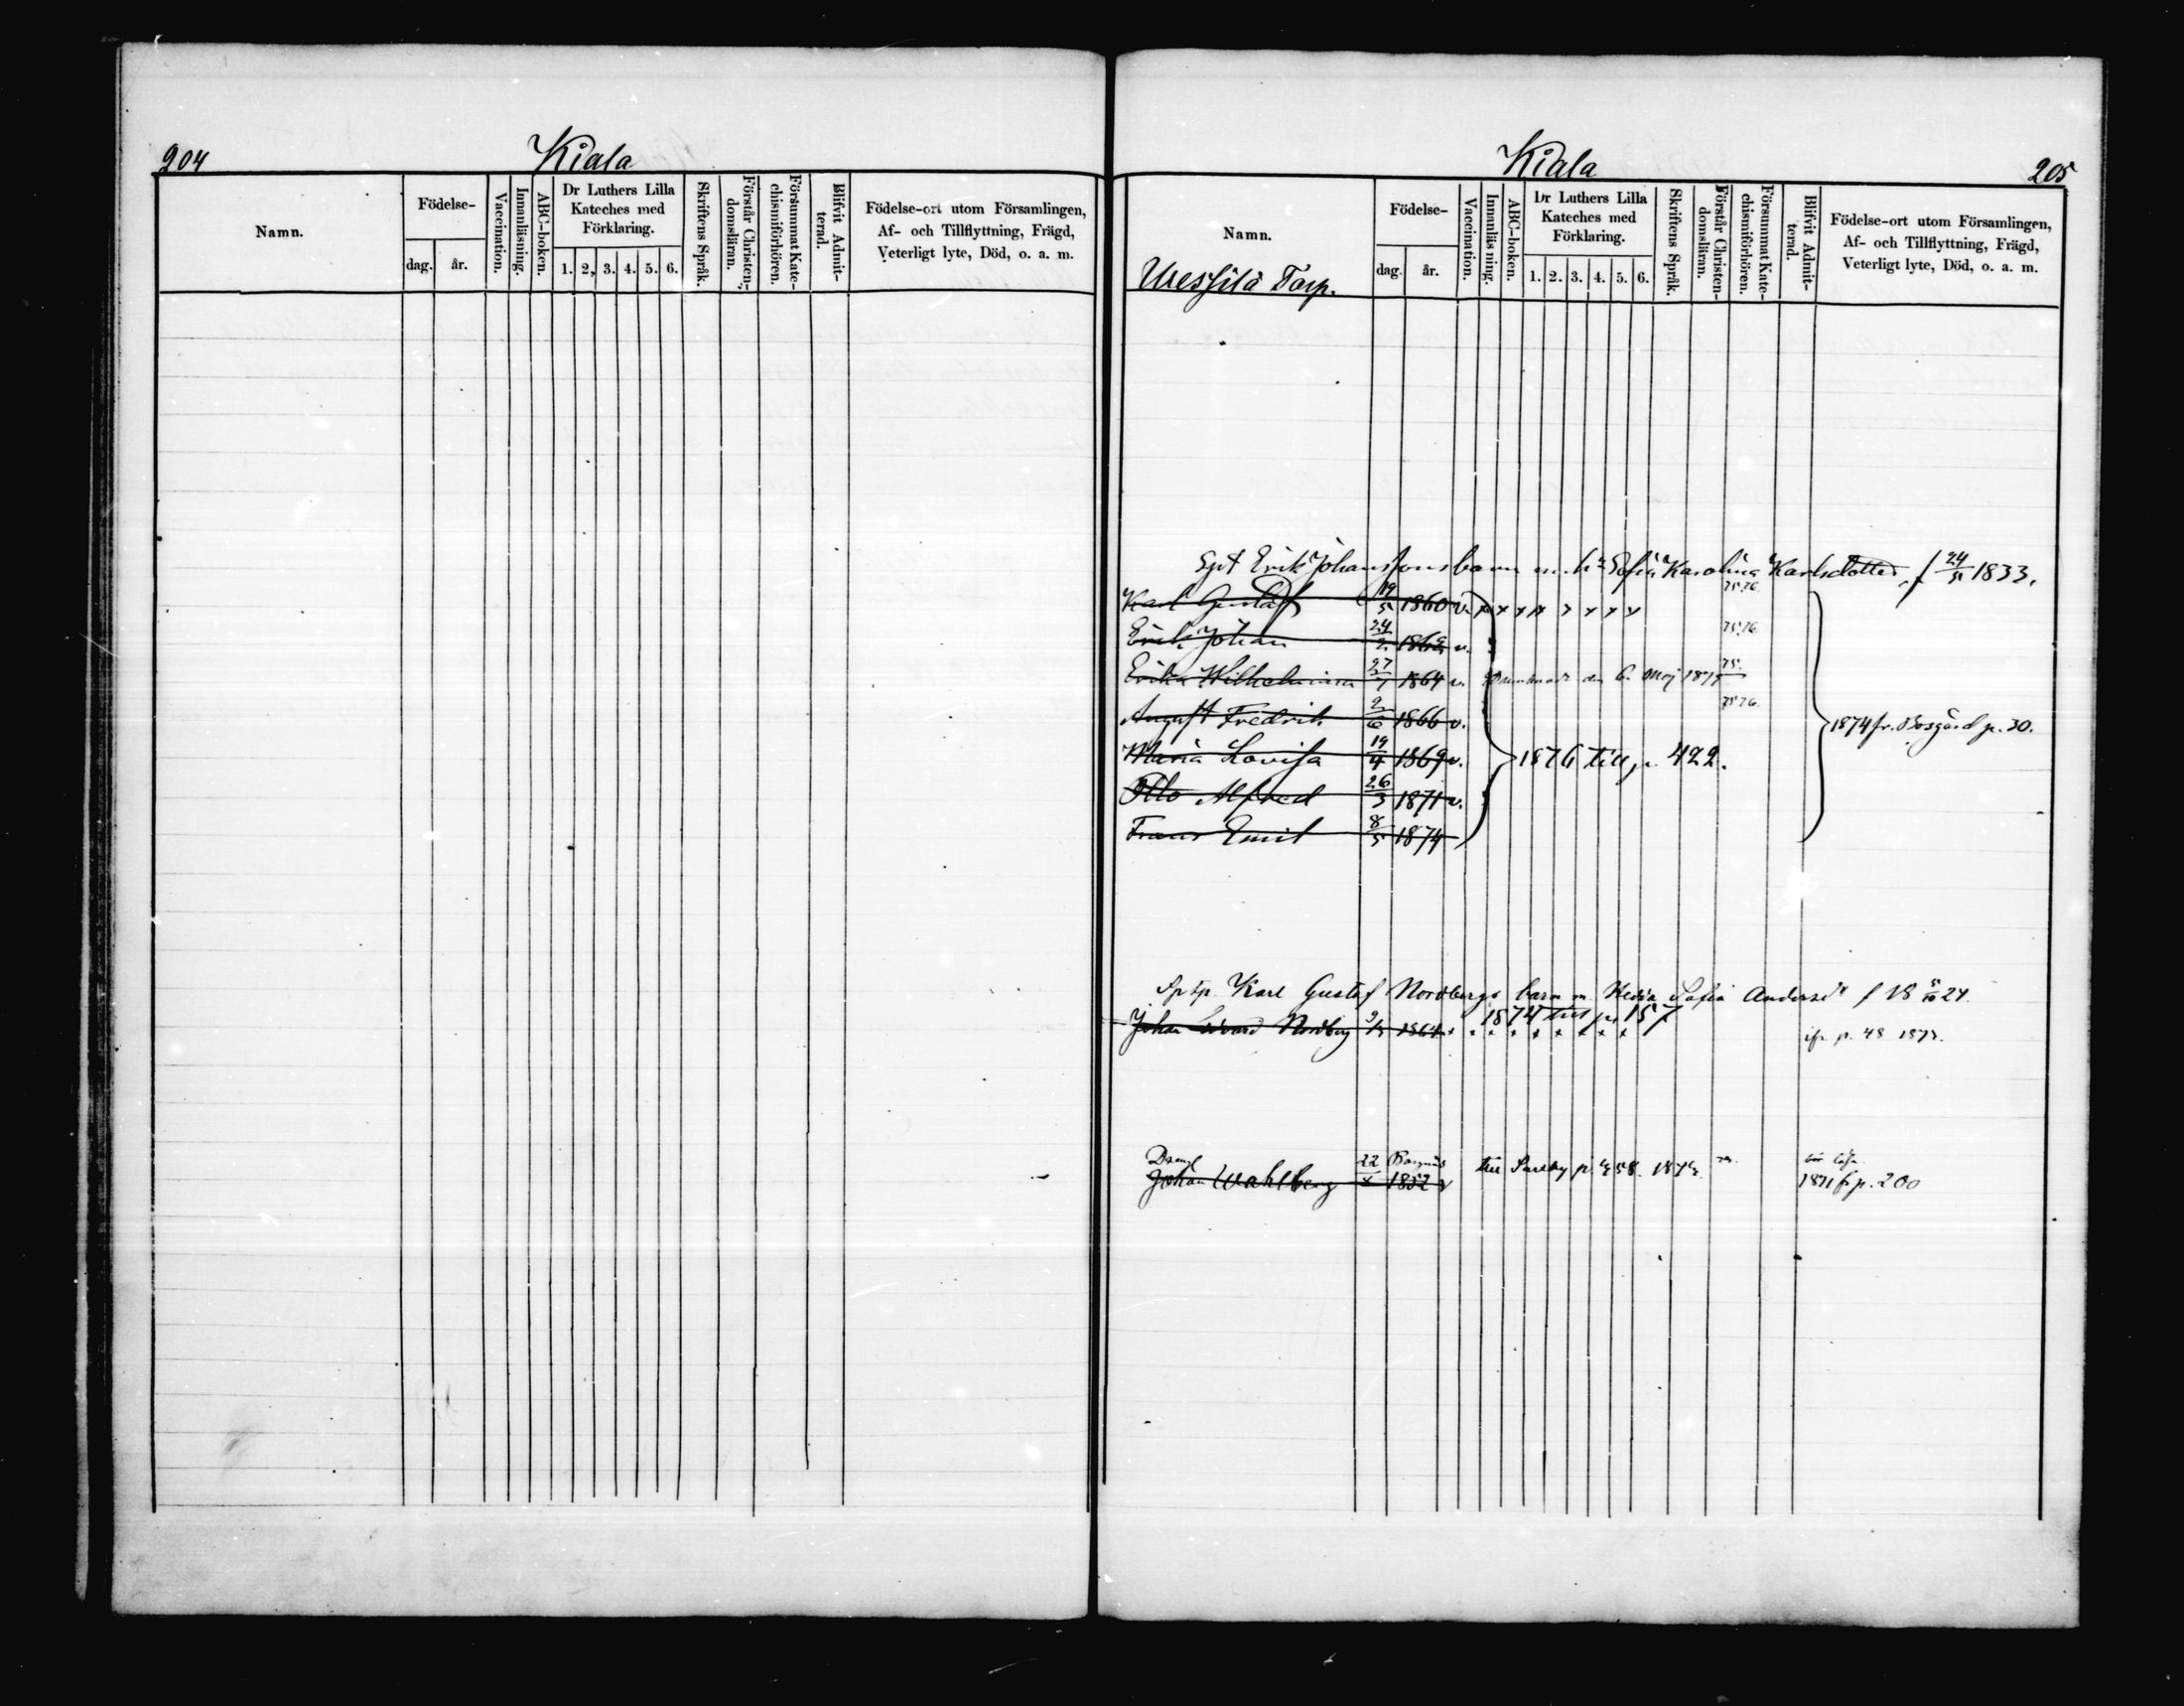 204
Kiala
Namn.
Födelse-
dag.
år.
Vaccination.
Innanläsning.
ABC-boken.
Dr Luthers Lilla
Kateches med
Förklaring.
1. 2, 3. 4. 5. 6.
Skriftens Språk.
Förstår Christen-
domsläran.
Försummat Kate-
chismiförhören.
Blifvit Admit-
terad.
Födelse-ort utom Församlingen,
Af- och Tillflyttning, Frägd,
Veterligt lyte, Död, o. a. m.
Kiala
205
Namn.
Födelse-
dag.
år.
Vaccination.
Innanläsning.
ABC-boken.
Dr Luthers Lilla
Kateches med
Förklaring.
1. 2. 3. 4. 5. 6.
Skriftens Språk.
Förstår Christen-
domsläran.
Försummat Kate-
chismiförhören.
Blifvit Admit-
terad.
Födelse-ort utom Församlingen,
Af- och Tillflyttning, Frägd,
Veterligt lyte, Död, o. a. m.
Torp.
Erik Johanssons barn m. h. Sofia Karolina Karlsdotter, f 24/5 1833.
Karl Gustaf 19/5 1860 v. x x x x x x x x 75.76.
Erik Johan 24/2 1862 v. 75.76
Erika Wilhelmina 27/7 1864 v. den 6. Maj 1875 75.
August Fredrik 2/6 1866 v. 75.76.
1874 fr. Bosgård p. 30.
Maria Lovisa 19/4 1869 v. 1876 till p. 422.
Otto Alfred 26/3 1871 v.
Frans Emil 8/5 1874
Karl Gustaf Nordbergs barn m Hedda Sofia Andersdr f 18 5/10 24.
1874 till p. 157
Johan Edvard Nordberg 1864 x x x x x x x x
p. 48 1873.
Dreng
Johan Wahlberg 22 Borgnäs 1852 v till p. 458. 1872.
1871 fr p. 200